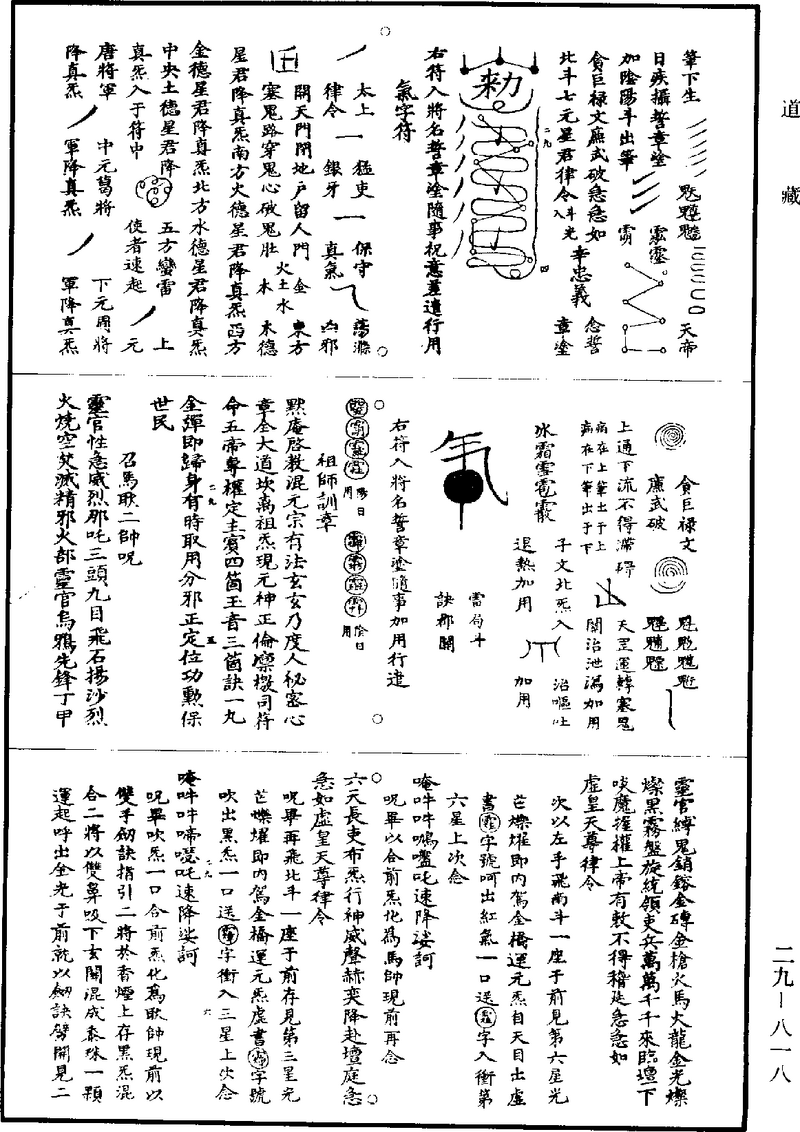 道藏
筆下生 魁䰢䰡 一二三二一〇〇 天帝
日疾攝誓章塗 靁靈
加陰陽斗出筆 雷
貪巨祿文廉武破急急如 辛忠義 念誓
北斗七元星君律令 入斗光 章塗
勑
二九
四
右符入將名誓章塗隨事祝意差遣行用
炁字符
太上 猛吏 保守 蕩滌
律令 銀牙 真氣 凶邪
開天門閉地戶留人門 金 東方
塞鬼路穿鬼心破鬼肚 火土水 木 木德
星君降真炁南方火德星君降真炁西方
金德星君降真炁北方水德星君降真炁
中央土德星君降 五方蠻雷 上
真炁入于符中 使者速起 元
唐將軍 中元葛將 下元周將
降真炁 軍降真炁 軍降真炁
貪巨祿文 魁
廉武破
上通下流不得滯碍 天罡運轉塞鬼
病在上筆出于上 閉治泄瀉加用
病在下筆出于下
子文北炁入 治嘔吐
冰霜雪雹霰 退熱加用 加用
炁
雷局斗
訣都關
右符入將名誓章塗隨事加用行遣
陽日用 陰日用
祖師訓章
默庵啓教混元宗有法玄玄乃度人秘密心
章全大道坎离祖炁現元神正倫懔檄司符
命五帝尊權定主賓四箇玉音三箇訣一九
二九
五
金彈即歸身有時取用分邪正定位功勳保
世民
召馬耿二帥呪
靈官性急威烈那吒三頭九目飛石揚沙烈
火燒空焚滅精邪火部靈官烏鴉先鋒丁甲
靈官縛鬼銷鎔金磚金槍火馬火龍金光燦
燦黑霧盤旋統領吏兵萬萬千千來臨壇下
啖魔握權上帝有敕不得稽延急急如
虛皇天尊律令
次以左手飛南斗一座于前見第六星光
芒爍燿即內駕金橋運元炁自天目出虛
書字號呵出紅氣一口送字入衝第
六星上次念
唵吽吽 吒速降娑訶
呪畢以合前炁化為馬帥現前再念
六天長吏布炁行神威聲赫奕降赴壇庭急
急如虛皇天尊律令
呪畢再飛北斗一座于前存見第三星光
芒爍燿即內駕金橋運元炁虛書字號
吹出黑炁一口送字衝入三星上次念
二九
六
唵吽吽 吒速降娑訶
呪畢吹炁一口合前炁化爲耿帥現前以
雙手劒訣指引二將於香煙上存黑炁混
合二將以雙鼻吸下玄關混成黍珠一顆
運起呼出金光于前就以劒訣劈開見二
二九—八一八